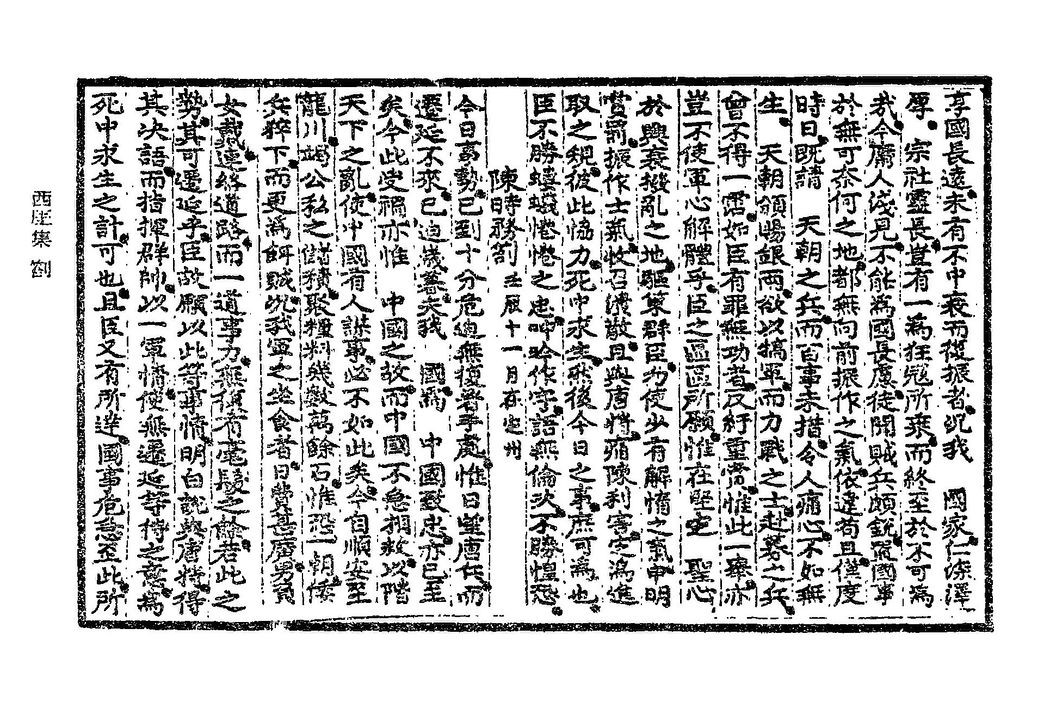 享國長遠未有不中衰而復振者況我 國家仁深澤
厚 宗社靈長豈有一爲狂寇所乘而終至於不可爲
哉今庸人淺見不能爲國長慮徒聞賊兵頗銳 國事
於無可奈何之地都無向前振作之氣依違苟且僅度
時日旣請 天朝之兵而百事未措令人痛心不如無
生 天朝頒賜銀兩欲以犒軍而力戰之士赴募之兵
曾不得一霑如臣有罪無功者反紆重賞惟此一擧亦
豈不使軍心解體乎臣之區區所願惟在堅定 聖心
於興衰撥亂之地驅策群臣勿使少有解惰之氣申明
賞罰振作士氣收召潰散且與唐將痛陳利害 爲進
取之規彼此協力死中求生然後今日之事庶可爲也
臣不勝螻蟻惓惓之忠呻吟作字語無倫次不勝惶恐
陳時務箚 壬辰十一月在定州
今日事勢已到十分危迫無復着手處惟日望唐兵而
遷延不來已迫歲暮矣我 國爲 中國致忠亦已至
矣今此受禍亦惟 中國之故而中國不急相救以階
天下之亂使中國有人謀事必不如此矣今自順安至
龍川竭公私之儲積聚糧料幾數萬餘石惟恐一朝倭
兵猝下而更爲餌賊況我軍之坐食者日費甚廣男負
女戴連絡道路而一道事力無復有毫髮之餘若此之
勢其可遷延乎臣故願以此等事情明白說與唐將得
其決語而指揮群帥以一軍情使無遷延等待之意爲
死中求生之計可也且臣又有所達國事危急至此所
西厓集 箚